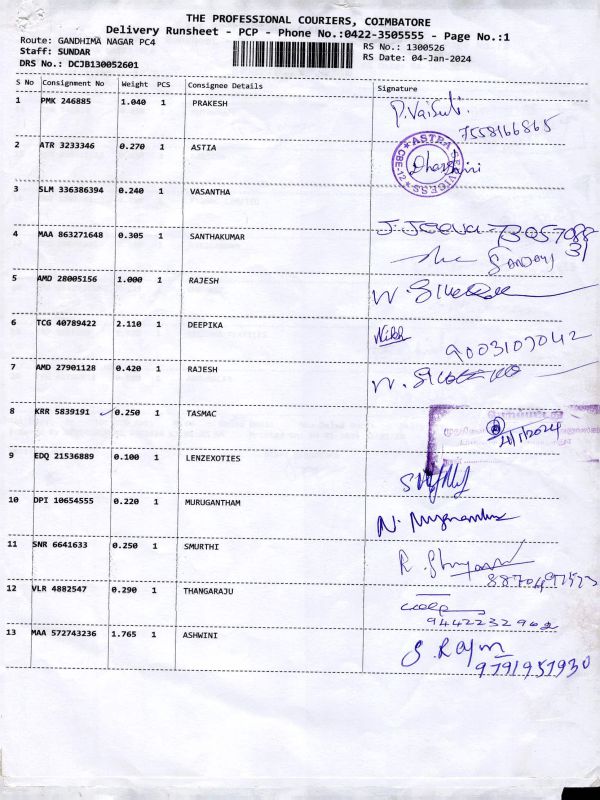 THE PROFESSIONAL COURIERS, COIMBATORE
Delivery Runsheet - PCP - Phone No.:0422-3505555 - Page No.:1
Route: GANDHIMA NAGAR PC4
RS No.: 1300526
Staff: SUNDAR
RS Date: 04-Jan-2024
DRS No.: DCJB130052601
S No Consignment No Weight PCS Consignee Details Signature
1 PMK 246885 1.040 1 PRAKESH
7558166865
2 ATR 3233346 0.270 1 ASTIA
ASTRA SERVICES CBE-12
3 SLM 336386394 0.240 1 VASANTHA
J. Jeeva 73057088
31
4 MAA 863271648 0.305 1 SANTHAKUMAR
5 AMD 28005156 1.000 1 RAJESH
6 TCG 40789422 2.110 1 DEEPIKA
9003107042
7 AMD 27901128 0.420 1 RAJESH
8 KRR 5839191 0.250 1 TASMAC
4/1/2024
9 EDQ 21536889 0.100 1 LENZEXOTIES
10 DPI 10654555 0.220 1 MURUGANTHAM
11 SNR 6641633 0.250 1 SMURTHI
12 VLR 4882547 0.290 1 THANGARAJU
13 MAA 572743236 1.765 1 ASHWINI
9791957930